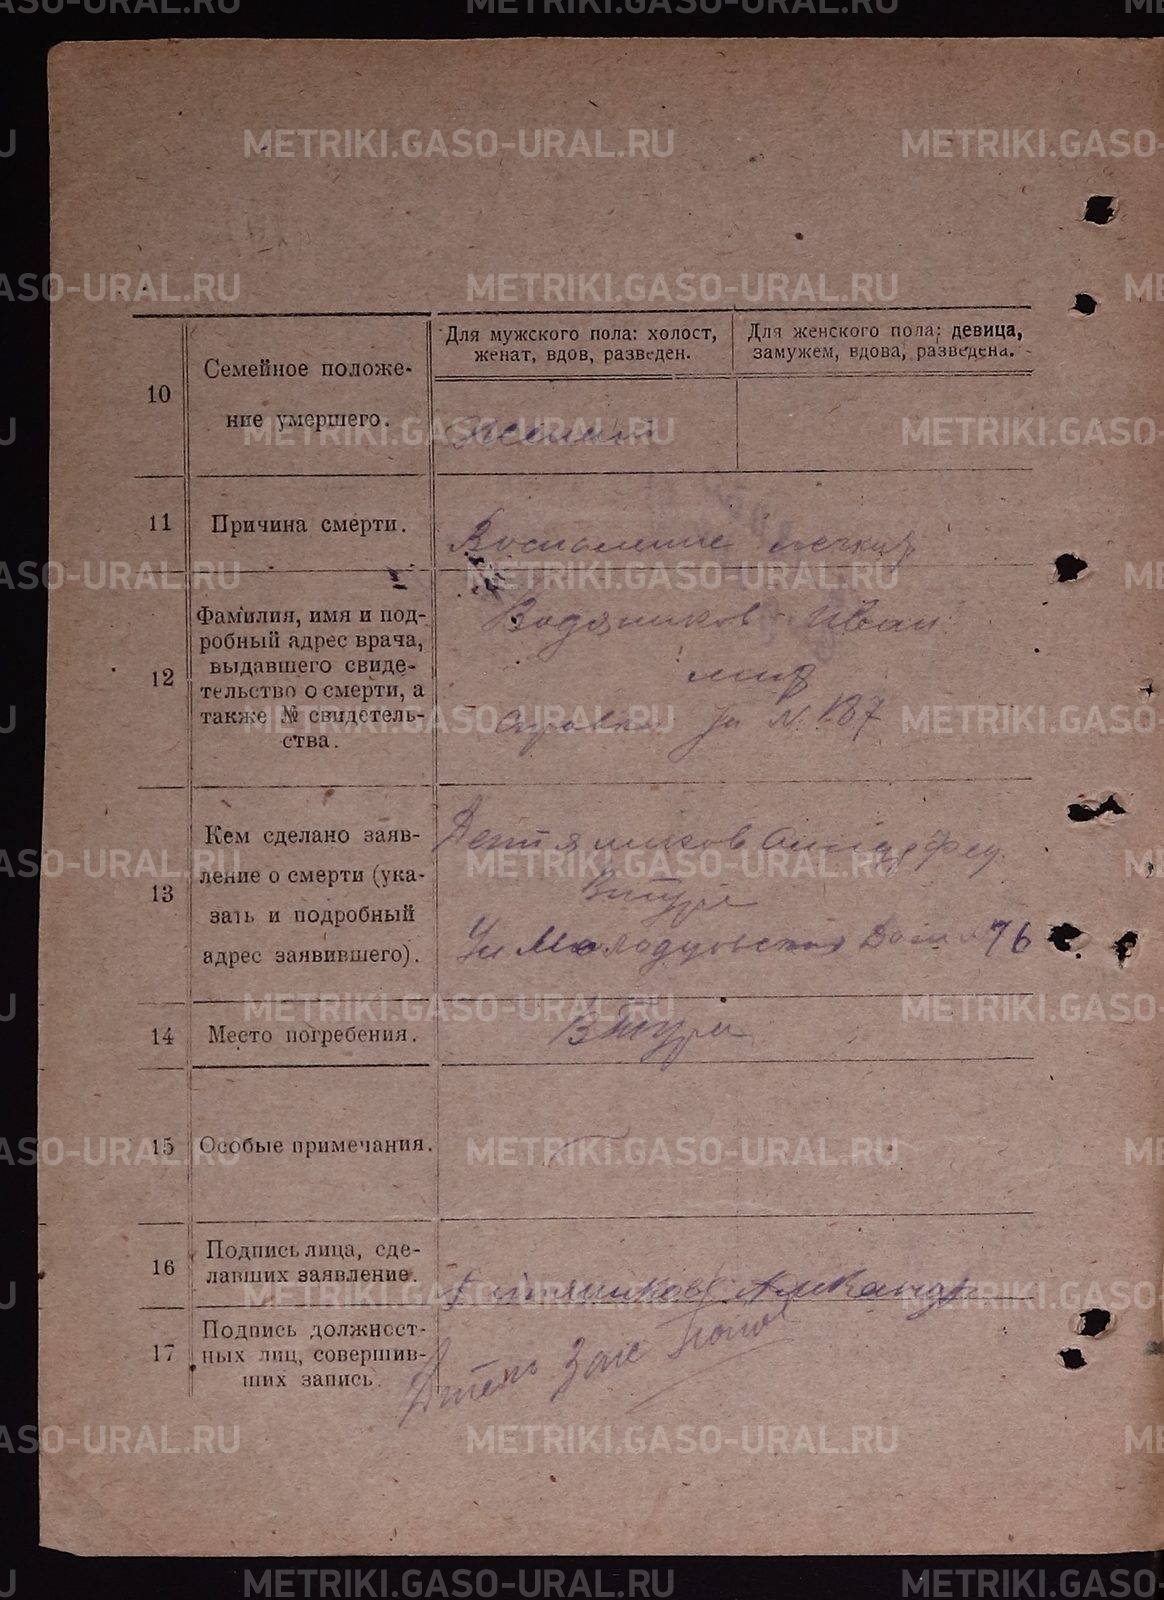 METRIKI.GASO-URAL.RU
Для мужского пола: холост, женат, вдов, разведен.
Для женского пола: девица, замужем, вдова, разведена.
10
Семейное положе-
ние умершего.
Женат
11
Причина смерти.
Воспаление
12
Фамилия, имя и под-
робный адрес врача,
выдавшего свиде-
тельство о смерти, а
также № свидетель-
ства.
Водяников Иван
справка за N 187
13
Кем сделано заяв-
ление о смерти (ука-
зать и подробный
адрес заявившего).
В Тура
Ул Дом 76
14
Место погребения.
В Тура
15
Особые примечания.
16
Подпись лица, сде-
лавших заявление.
17
Подпись должност-
ных лиц, совершив-
ших запись.
Загс Попов